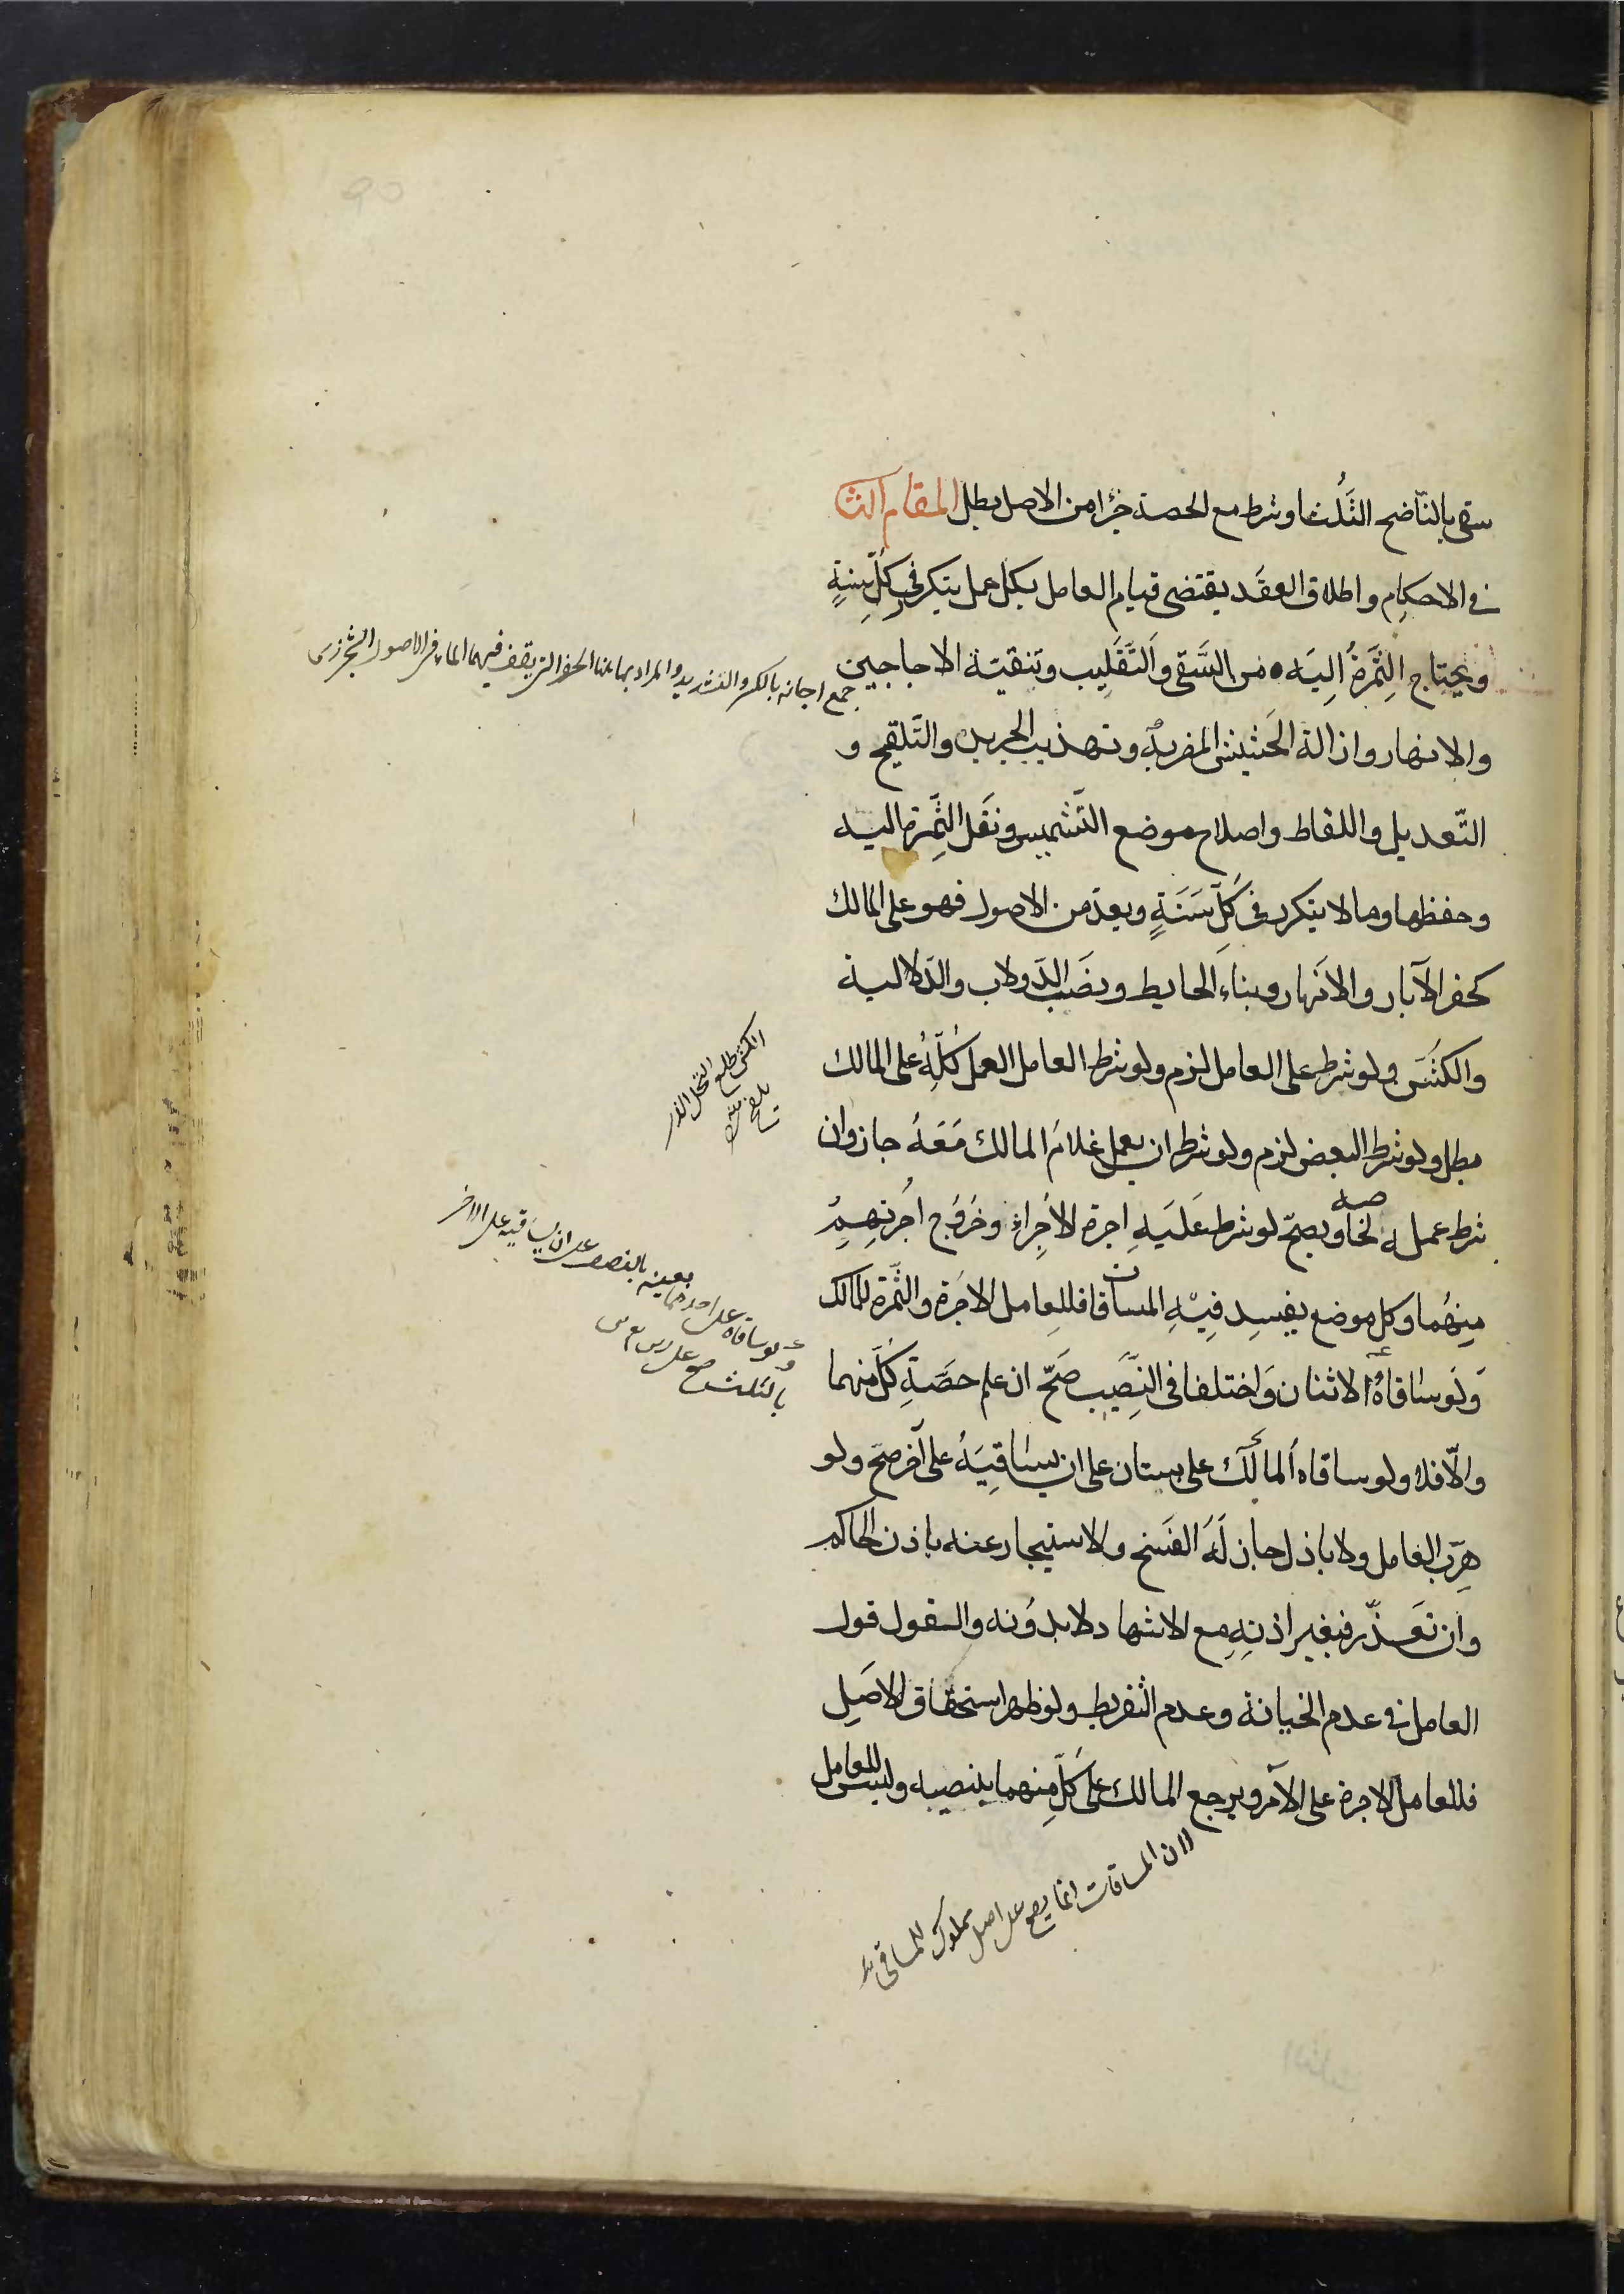 سقى بالنّاضح الثُلث او شرط مع الحصة جزءا من الاصل بطل المقام الثا
فى الاحكام واطلاق العقد يقتضى قيام العامل بكل عمل يتكرر فى كلّ سنةٍ
ويحتاج الثمرةُ اليه من السَّقى والتَّقليب وتنقية الاجاجين
والانهار وازالة الحشيش المضر به وتهذيب الجريد والتّلقيح و
التّعديل واللقاط واصلاح موضع التّشميس ونقل الثمرة اليه
وحفظها وما لا يتكرر فى كلّ سَنَةٍ ويعد من الاصول فهو على المالك
كحفر الآبار والانهار وبناء الحايط ونصب الدّولاب والدّالية
والكش ولو شرط على العامل لزم ولو شرط العامل العمل كلّهُ على المالك
بطل ولو شرط البعض لزم ولو شرط ان يعمل غلامُ المالك مَعَهُ جاز وان
شرط عمله لخاصه ويصحّ لو شرط عَلَيهِ اجرة الاُجراء وخروج اُجرتهم
مِنهُما وكل موضع يفسد فِيْهِ المساقات فللعامل الاجرة والثّمرة للمالك
وَلَو ساقاهُ الاثنان وَاختلفا فى النّصيب صَحّ ان علم حصّةِ كلّ منهما
والّا فلا ولو ساقاه المالك على بستان على ان يساقِيَهُ على آخر صحّ ولو
هرب العامل ولا باذل جاز لَهُ الفسخ والاستيجار عنه باذن الحاكم
وان تعذّر فبغير اذنِهِ مع الاشهاد لا بدُونه والقول قول
العامل فى عدم الخيانة وعدم التفريط ولو ظهر استحقاق الاصل
فللعامل الاجرة على الآمر ويرجع المالك على كلّ منهما بنصيبه وليس للعامل
جمع اجانه بالكسر والتشديد والمراد بها هنا الحفر التى يقف فيها الماء فى الاصول الشجر
الكش طلع النخل الذى
يلقح منه
ولو ساقاه على احدهما بعينه بالنصف على ان يساقيه على الاخر
بالثلث صح على
لان المساقات انما يصح على اصل مملوك للمساقى